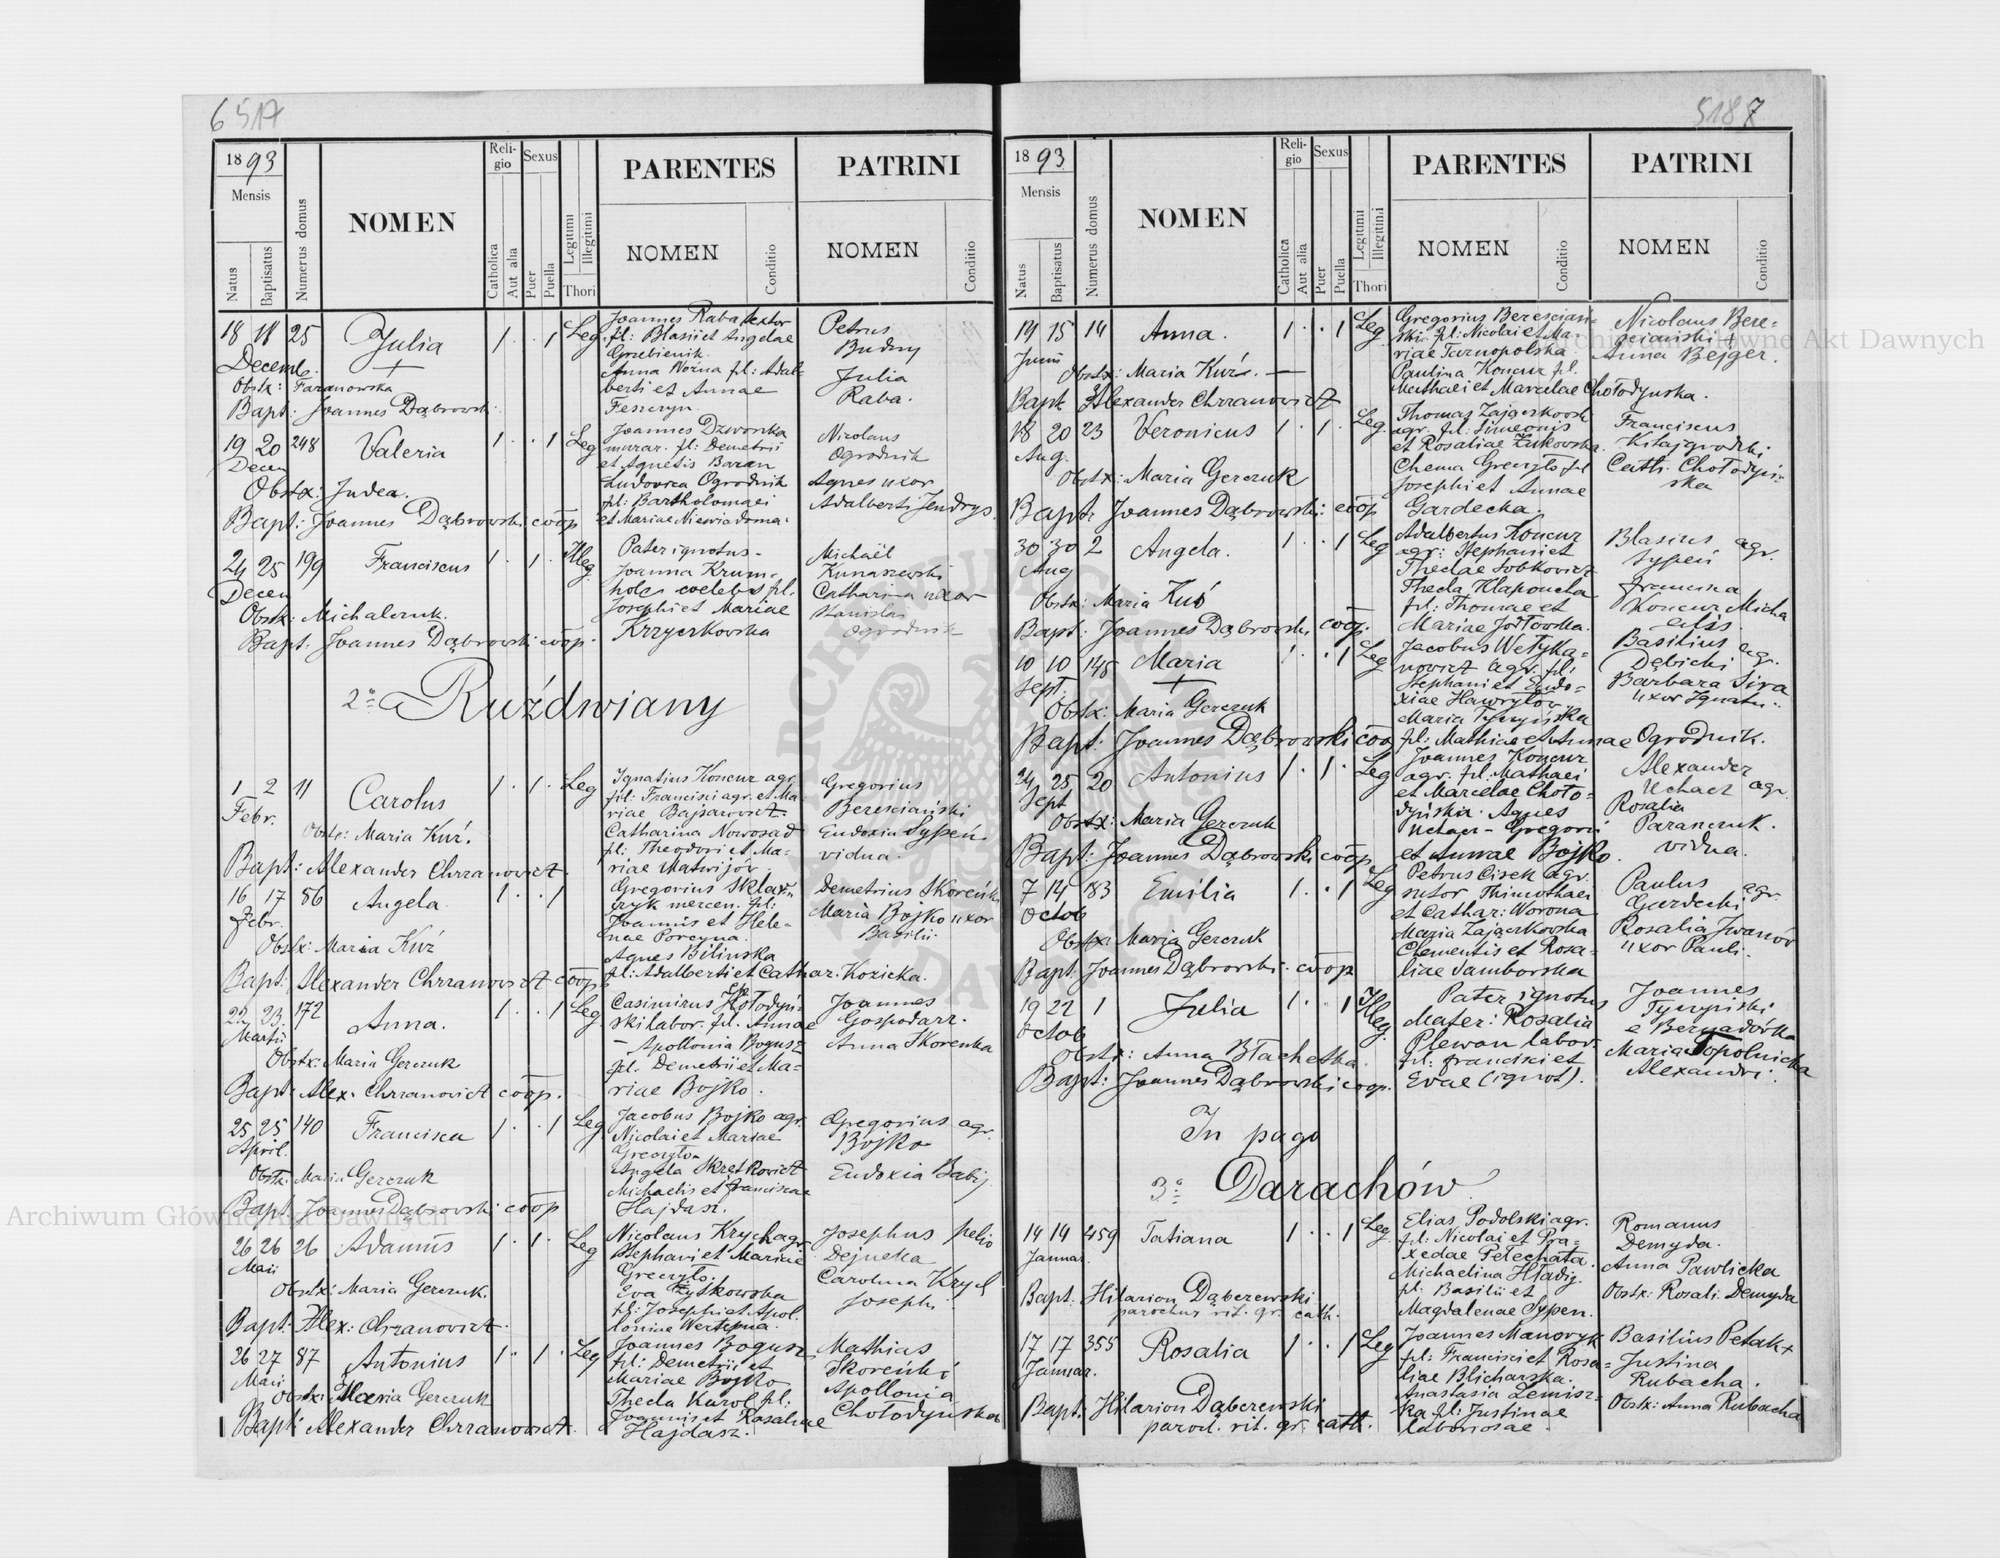 6 517
1893
Mensis
Natus
Baptisatus
Numerus domus
NOMEN
Religio
Catholica
Aut alia
Sexus
Puer
Puella
Legitimi
Illegitimi
Thori
PARENTES
NOMEN
Conditio
PATRINI
NOMEN
Conditio
18 18 25 Julia 1 . . 1 Leg
Decemb.
Obstx: Taranowska
Bapt: Joannes Dąbrowski
Joannes Raba textor
fil: Blasii et Angelae
Grzebienik
Anna Woźna fil: Adal-
berti et Annae
Petrus
Budny
Julia
Raba.
19 20 248 Valeria 1 . . 1 Leg
Decem
Obstx: Judea.
Bapt: Joannes Dąbrowski coop
Joannes Dzwonka
murar. fil: Demetrii
et Agnetis Baran
Ludovica Ogrodnik
fil: Bartholomaei
et Mariae Niewiadoma.
Nicolaus
Ogrodnik
Agnes uxor
Adalberti Jendrys.
24 25 199 Franciscus 1 . 1 . Illeg.
Decem
Obstx: Michalczuk.
Bapt: Joannes Dąbrowski coop.
Pater ignotus -
Joanna Krum-
holc coelebs fil.
Josephi et Mariae
Krzyczkowska
Michaël
Kunaszewski
Catharina uxor
Stanislai
Ogrodnik
2o Ruździwiany
1 2 11 Carolus 1 . 1 . Leg
Febr.
Obstx: Maria Kuź.
Bapt: Alexander Chrzanowicz
Ignatius Koncur agr.
fil: Francisci agr. et Ma-
riae Bajsarowicz
Catharina Nowosad
fil: Theodori et Ma-
riae Matwijów.
Gregorius
Beresciański
Eudoxia Sypeń
vidua.
16 17 86 Angela 1 . . 1
Febr.
Obstx: Maria Kuź
Bapt: Alexander Chrzanowicz coop
Joannis et Hele-
nae Porcyna.
Agnes Bilinska
fil: Adalberti et Cathar. Kozicka.
Demetrius Skoreńki
Maria Bojko uxor
Basilii
22 23 172 Anna. 1 . . 1 Leg
Martii
Obstx: Maria Gerczuk
Bapt: Alex. Chrzanowicz coop.
ski labor. fil. Annae
- Apollonia Bogusz
fil. Demetrii et Ma-
riae Bojko.
Joannes
Gospodarz.
Anna Skorenka
25 25 140 Francisca 1 . . 1 Leg
April.
Obstx: Maria Gerczuk
Bapt. Joannes Dąbrowski coop
Jacobus Bojko agr.
Nicolai et Mariae
Angela Skrętkowicz
Michaelis et Franciscae
Hajdasz.
Gregorius agr.
Bojko
Eudoxia Babij
26 26 26 Adamus 1 . 1 . Leg
Maii
Obstx: Maria Gerczuk.
Bapt: Alex: Chrzanowicz.
Nicolaus Krych agr.
Stephani et Mariae
Eva Żytkowska
fil: Josephi et Apol-
loniae Wertepna.
Josephus
Dejneka
Carolina Krych
Josephi
26 27 87 Antonius 1 . 1 . Leg
Maii
Obstx: Maria Gerczuk
Bapt: Alexander Chrzanowicz
Joannes Bogusz
fil: Demetrii et
Mariae Bojko
Thecla Karol fil:
Joannis et Rosaliae
Hajdasz.
Mathias
Skoreńki
Apollonia
Chołodyńska
5188 7
1893
Mensis
Natus
Baptisatus
Numerus domus
NOMEN
Religio
Catholica
Aut alia
Sexus
Puer
Puella
Legitimi
Illegitimi
Thori
PARENTES
NOMEN
Conditio
PATRINI
NOMEN
Conditio
14 15 14 Anna. 1 . . 1 Leg
Junii
Obstx: Maria Kuź. —
Bapt Alexander Chrzanowicz
Gregorius Beresciań-
ski fil: Nicolai et Ma-
riae Tarnopolska
Paulina Koncur fil.
Mathaei et Marcelae Chołodyńska.
Nicolaus Bere-
sciański +
Anna Bejger.
18 20 23 Veronicus 1 . 1 . Leg
Aug.
Obstx: Maria Gerczuk
Bapt: Joannes Dąbrowski coop
Thomas Zajączkowski
agr. fil: Simeonis
et Rosaliae Żukowska.
Josephi et Annae
Gardecka.
Franciscus
Kitajgrodzki
Cath. Chołodyń-
ska
30 30 2 Angela. 1 . . 1 Leg
Aug
Obstx: Maria Kuś
Bapt: Joannes Dąbrowski coop.
Adalbertus Koncur
agr: Stephani et
Theclae Sobkowicz
Thecla Kłapoucha
fil: Thomae et
Mariae Jodłowska.
Blasius agr.
Sypeń
Francisca
Koncur Micha
elis.
10 10 145 Maria 1 . . 1 Leg
Sept.
Obstx: Maria Gerczuk
Bapt: Joannes Dąbrowski coop
Jacobus Wetyka-
nowicz agr. fil:
Stephani et Eudo-
xiae Hawryłów.
Maria Tyczyńska
fil: Mathiae et Annae Ogrodnik.
Basilius agr.
Dębicki
Barbara Siva
uxor Ignatii.
24 25 20 Antonius 1 . 1 . Leg
Sept
Obstx: Maria Gerczuk
Bapt: Joannes Dąbrowski coop
Joannes Koncur
agr. fil. Mathaei
et Marcelae Choło-
dyńska. Agnes
Uchacz - Gregorii
et Annae Bojko.
Alexander
Uchacz agr.
Rosalia
Paranczuk.
vidua.
7 14 83 Emilia 1 . . 1 Leg
Octob
Obstx: Maria Gerczuk
Bapt: Joannes Dąbrowski. coop
Petrus Cisek agr.
sutor Thimothaei
et Cathar: Worona
Maria Zajączkowska
Clementis et Rosa-
liae Samborska
Paulus agr.
Gardecki
Rosalia Iwanów
uxor Pauli.
19 22 1 Julia 1 . . 1 Illeg.
Octob
Obstx: Anna Błachetka.
Bapt: Joannes Dąbrowski coop.
Pater ignotus
Mater: Rosalia
Plewan labor.
fil: Francisci et
Evae (ignot).
Joannes
Tyczyński
e Bernadówka
Maria Topolnicka
Alexandri.
In pago
3o Darachów
14 14 459 Tatiana 1 . . 1 Leg.
Januar.
Bapt. Hilarion Dąberewski
parochus rit. gr. cath.
Elias Podolski agr.
fil: Nicolai et Pra-
xedae Pełechata.
Michaelina Hładij
fil: Basilii et
Magdalenae Sypen.
Romanus
Demyda.
Anna Pawlicka
Obstx: Rosali. Demyda
17 17 355 Rosalia 1 . . 1 Leg
Januar.
Bapt: Hilarion Dąberewski
paroch. rit. gr. cath.
Joannes Manoryk
fil: Francisci et Rosa-
liae Blicharska.
Anastasia Zemisz-
ka fil: Justinae
laboriosae.
Basilius Petak +
Justina
Rubacha.
Obstx: Anna Rubacha
Archiwum Główne Akt Dawnych
Archiwum Główne Akt Dawnych